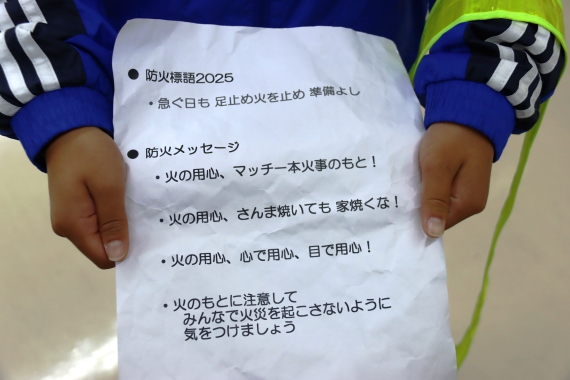 ● 防火標語2025
・急ぐ日も 足止め火を止め 準備よし
● 防火メッセージ
・火の用心、マッチ一本火事のもと！
・火の用心、さんま焼いても 家焼くな！
・火の用心、心で用心、目で用心！
・火のもとに注意して
みんなで火災を起こさないように
気をつけましょう